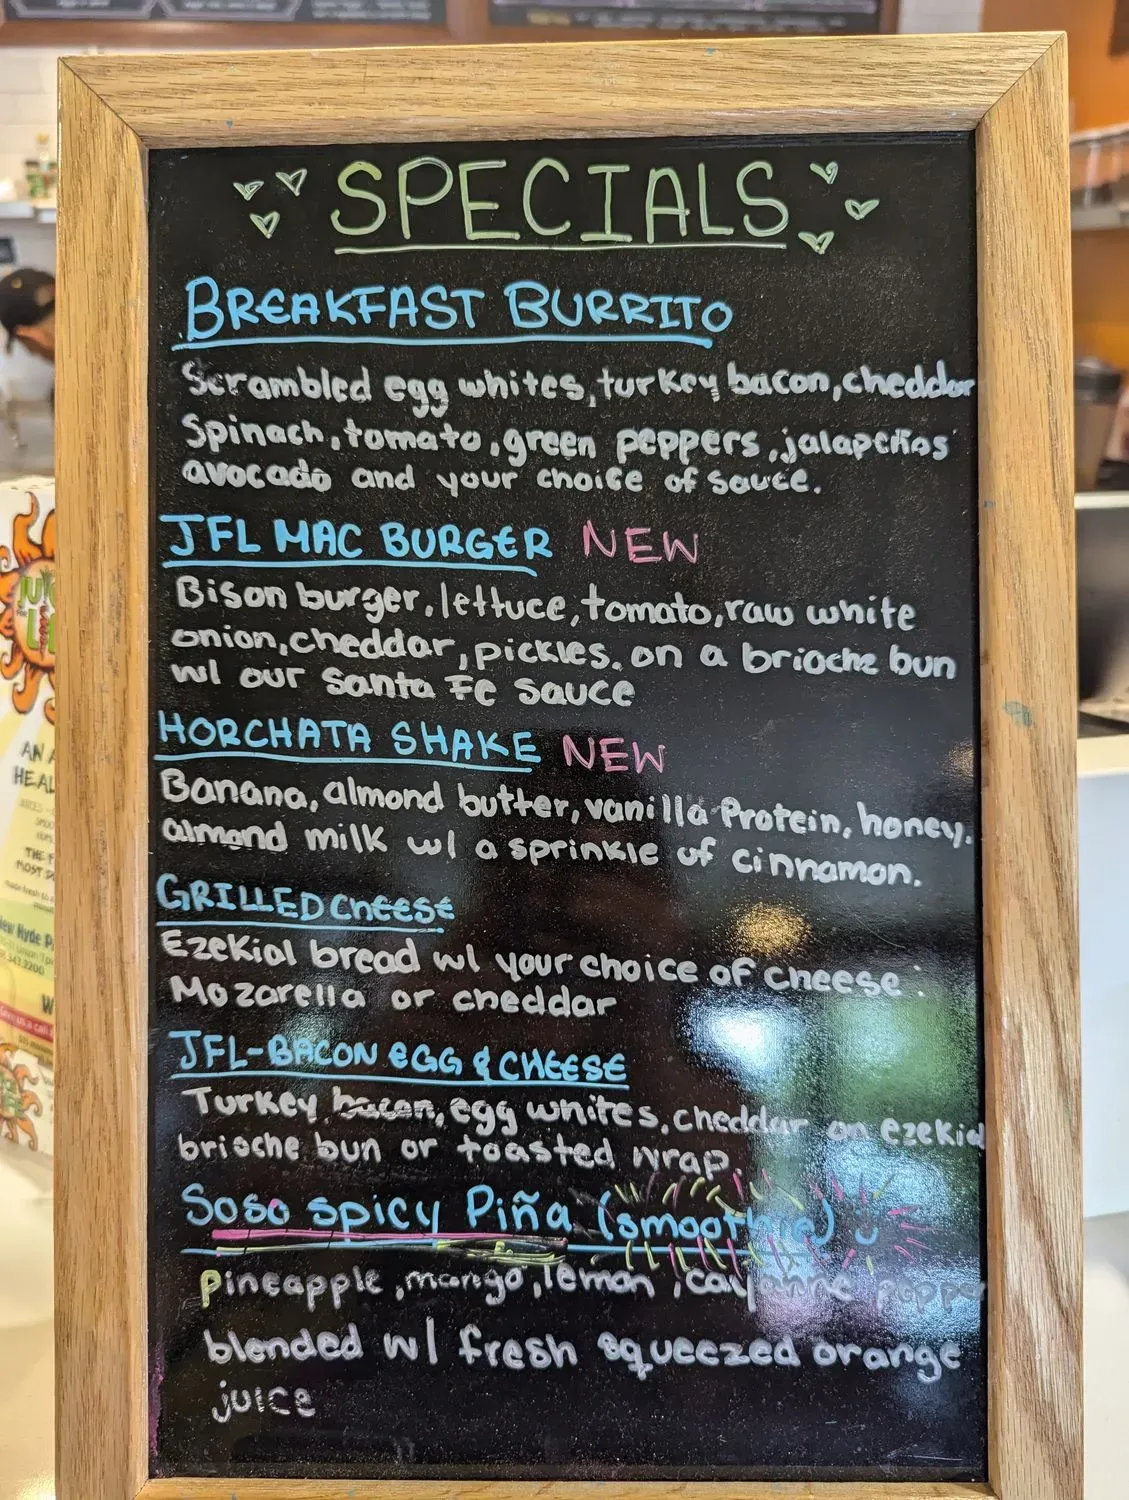 SPECIALS
BREAKFAST BURRITO
Scrambled egg whites, turkey bacon, cheddar
Spinach, tomato, green peppers, jalapeños
avocado and your choice of sauce.
JFL MAC BURGER NEW
Bison burger, lettuce, tomato, raw white
onion, cheddar, pickles. on a brioche bun
w/ our Santa Fe sauce
HORCHATA SHAKE NEW
Banana, almond butter, vanilla Protein, honey,
almond milk w/ a sprinkle of cinnamon.
GRILLED CHEESE
Ezekial bread w/ your choice of cheese:
Mozarella or cheddar
JFL-BACON EGG & CHEESE
Turkey bacon, egg whites, cheddar on ezekial
brioche bun or toasted wrap.
Soso spicy Piña (smoothie)
pineapple, mango, lemon, cayenne pepper
blended w/ fresh squeezed orange
juice